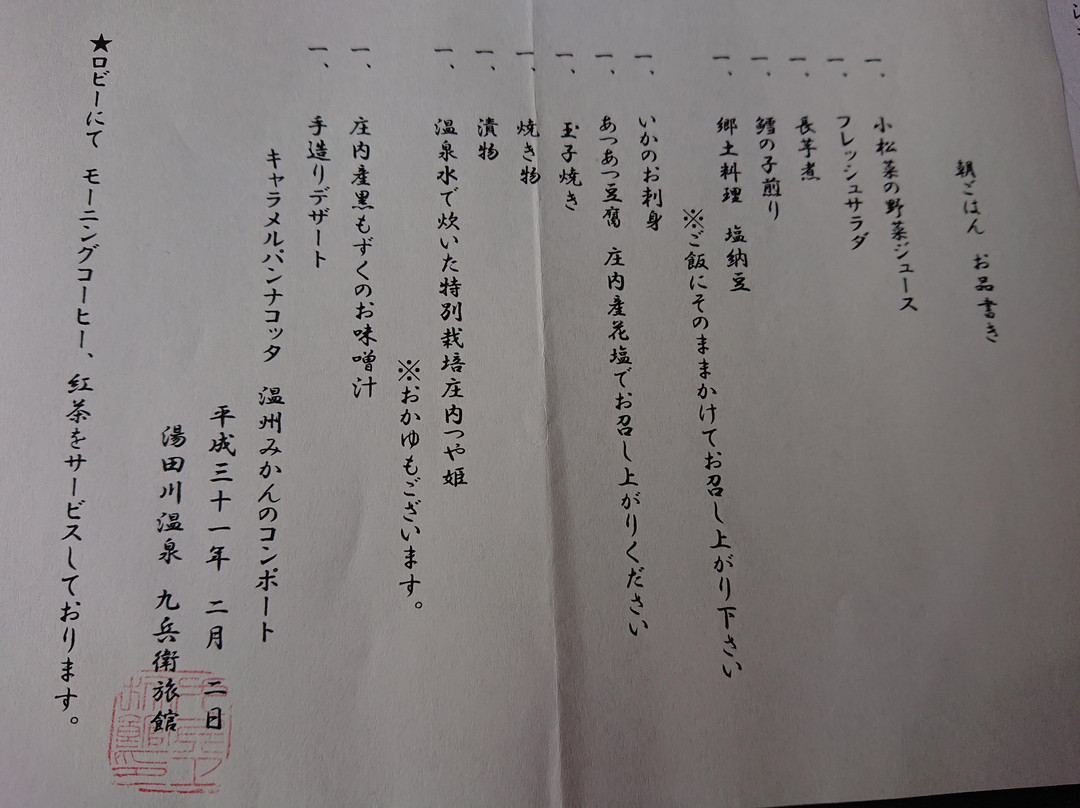 朝ごはん　お品書き
一、　小松菜の野菜ジュース
一、　フレッシュサラダ
一、　長芋煮
一、　鱈の子煎り
一、　郷土料理　塩納豆
※ご飯にそのままかけてお召し上がり下さい
一、　いかのお刺身
一、　あつあつ豆腐　庄内産花塩でお召し上がりください
一、　玉子焼き
一、　焼き物
一、　漬物
一、　温泉水で炊いた特別栽培庄内つや姫
※おかゆもございます。
一、　庄内産黒もずくのお味噌汁
一、　手造りデザート
キャラメルパンナコッタ　温州みかんのコンポート
平成三十一年　二月　二日
湯田川温泉　九兵衛旅館
★ロビーにて　モーニングコーヒー、紅茶をサービスしております。